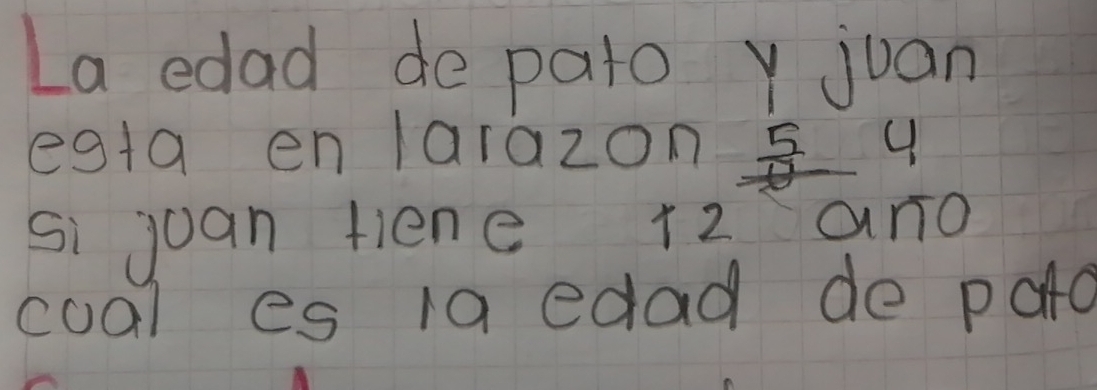 La edad de pato y juan
esta en larazon 5 4
si juan tiene 12 año
cual es la edad de pato